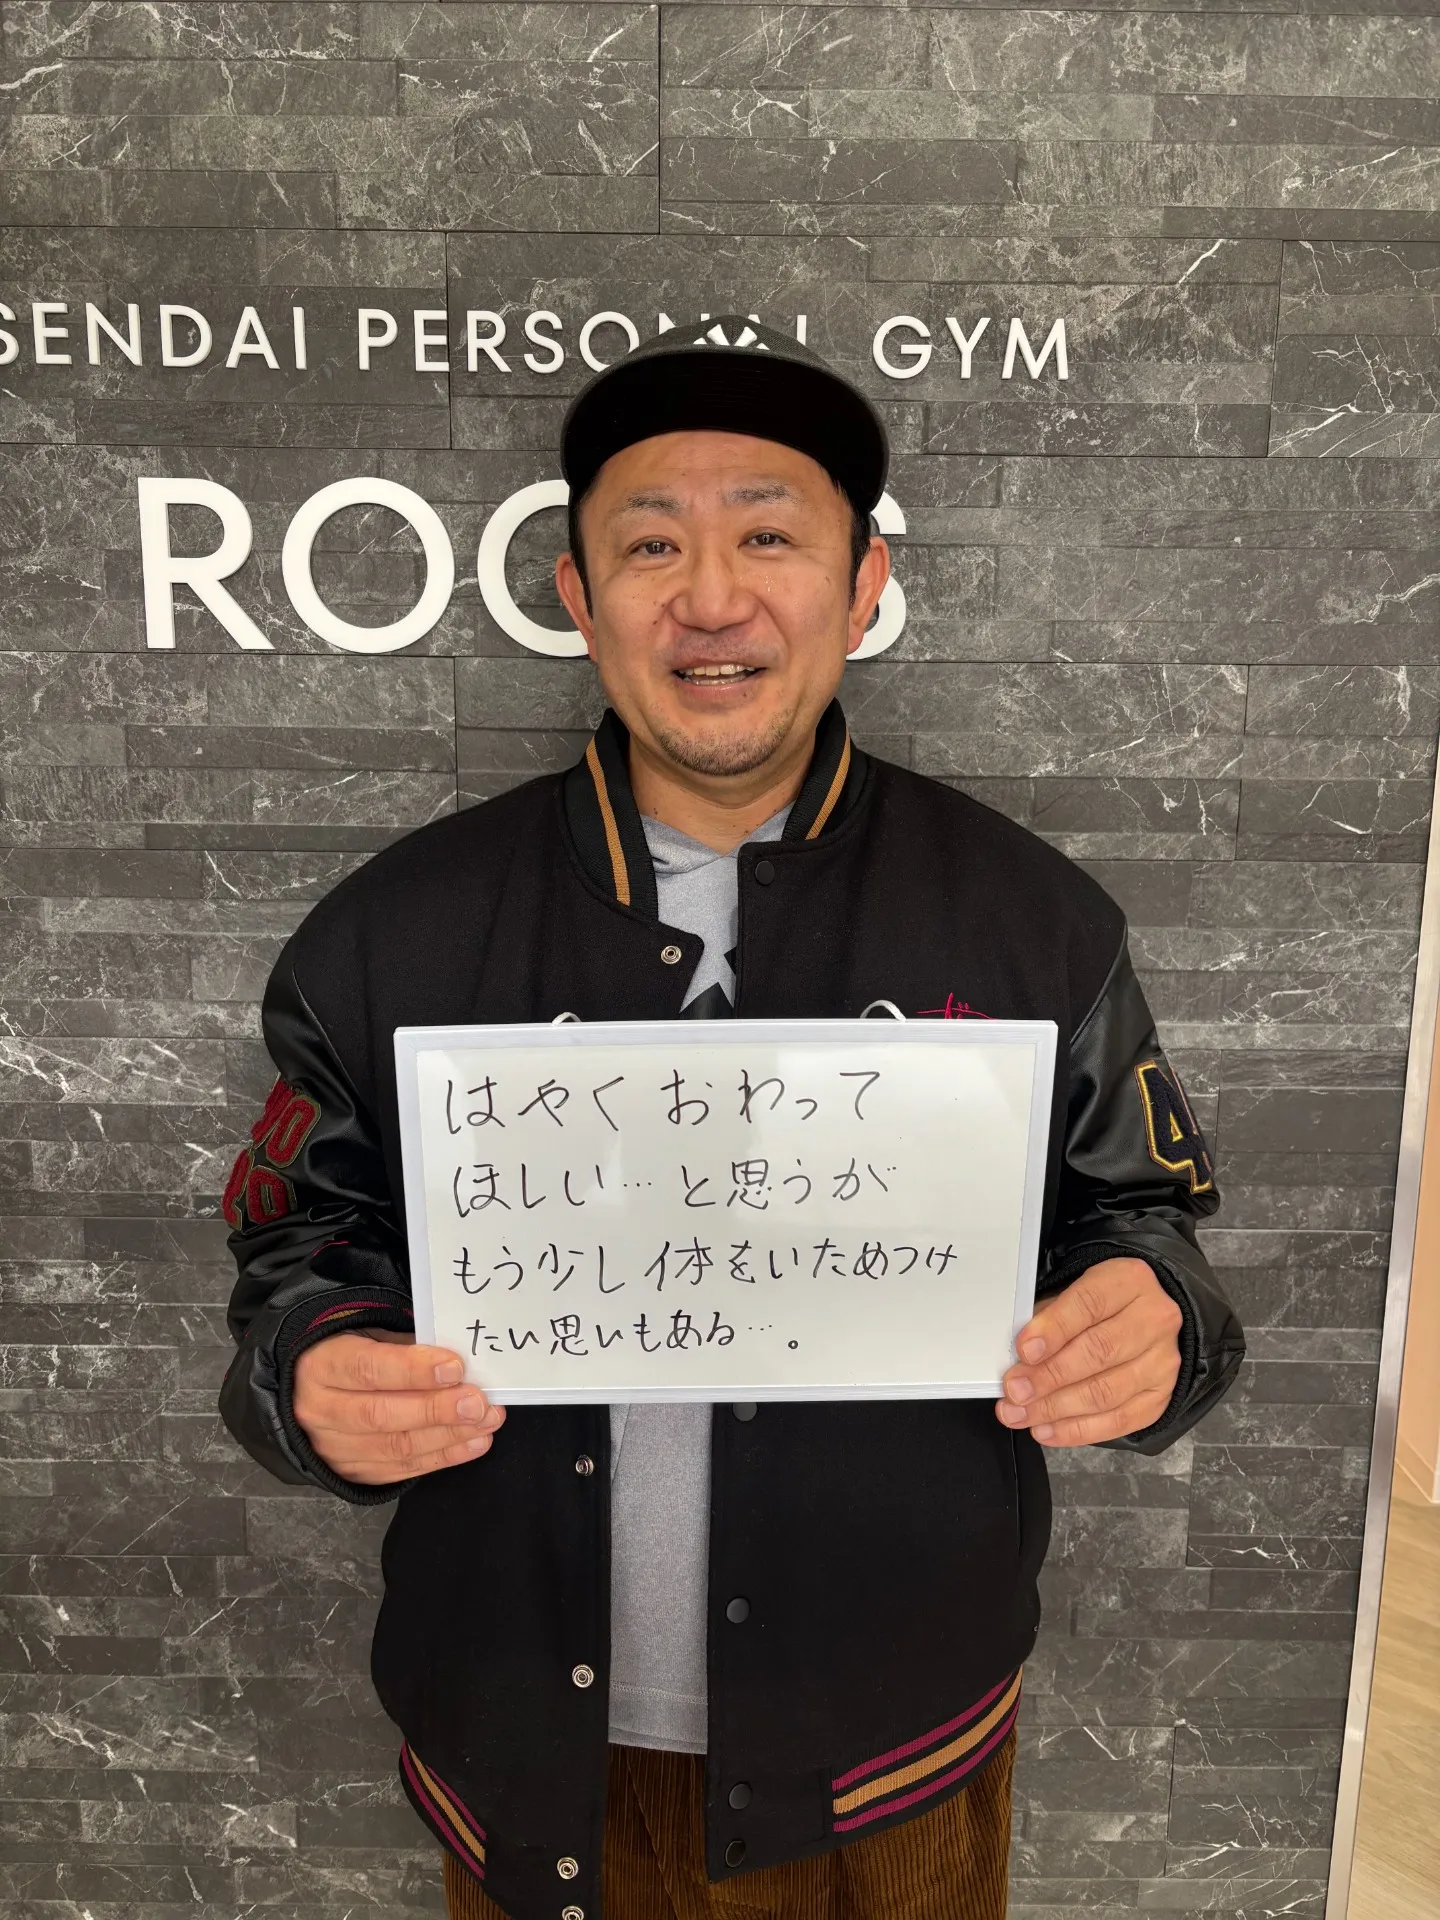 SENDAI PERSONAL GYM
はやく おわって
ほしい…と思うが
もう少し体をいためつけ
たい思いもある…。